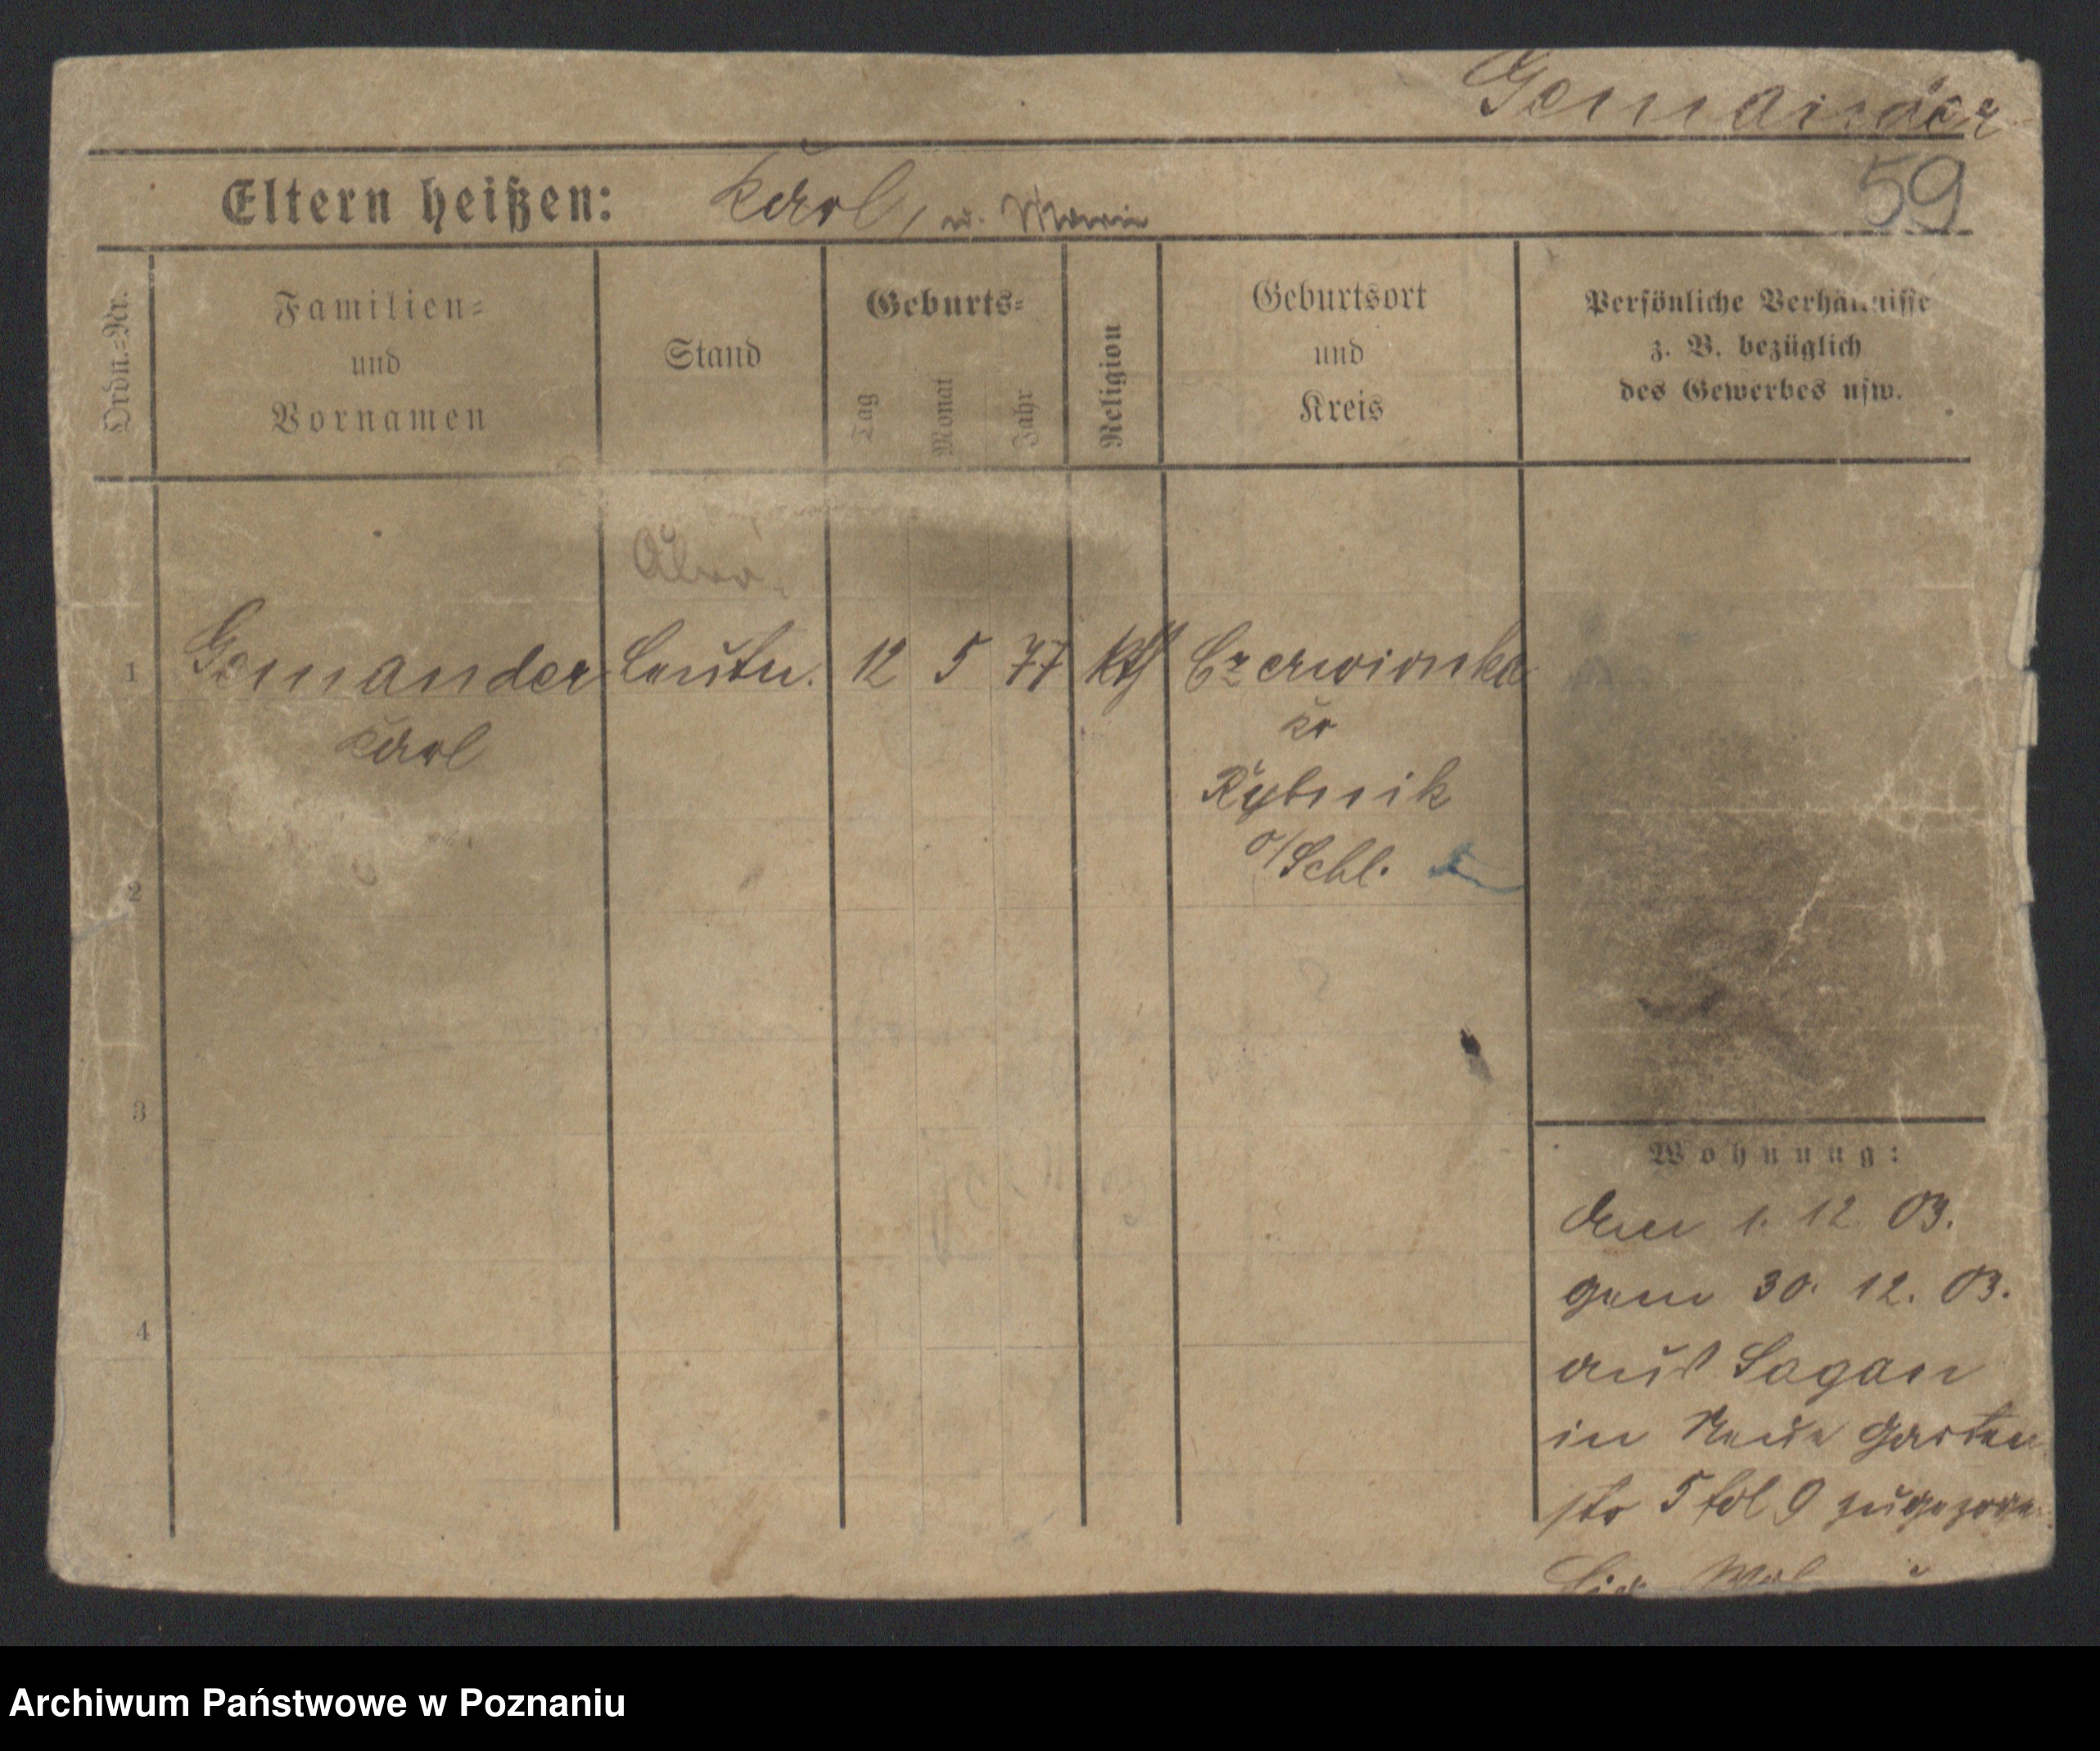 Gemander
59
Eltern heißen: Karl, u. Marie
Ordn.=Nr.
Familien=
und
Vornamen
Stand
Geburts=
Tag
Monat
Jahr
Religion
Geburtsort
und
Kreis
Persönliche Verhältnisse
z. B. bezüglich
des Gewerbes usw.
1 Gemander Leutn. 12 5 77 kth Czerwionka
Karl
Kr
Rybnik
O/Schl.
2
3
4
Wohnung:
den 1. 12 03.
gem 30. 12. 03.
aus Sagan
in Neue Garten
str 5 bei zugezogen
Archiwum Państwowe w Poznaniu